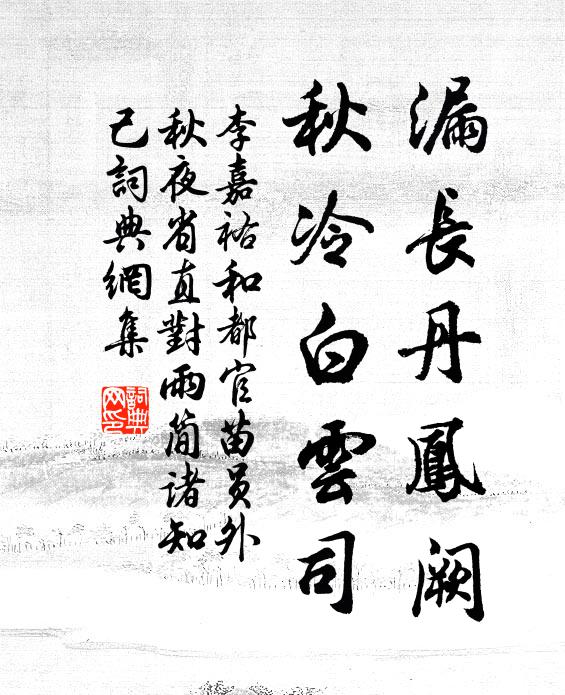 漏長丹鳳闕
秋冷白雲司
李嘉祐和都官苗員外
秋夜省直對雨簡諸知
己詞典網集
詞典
网印